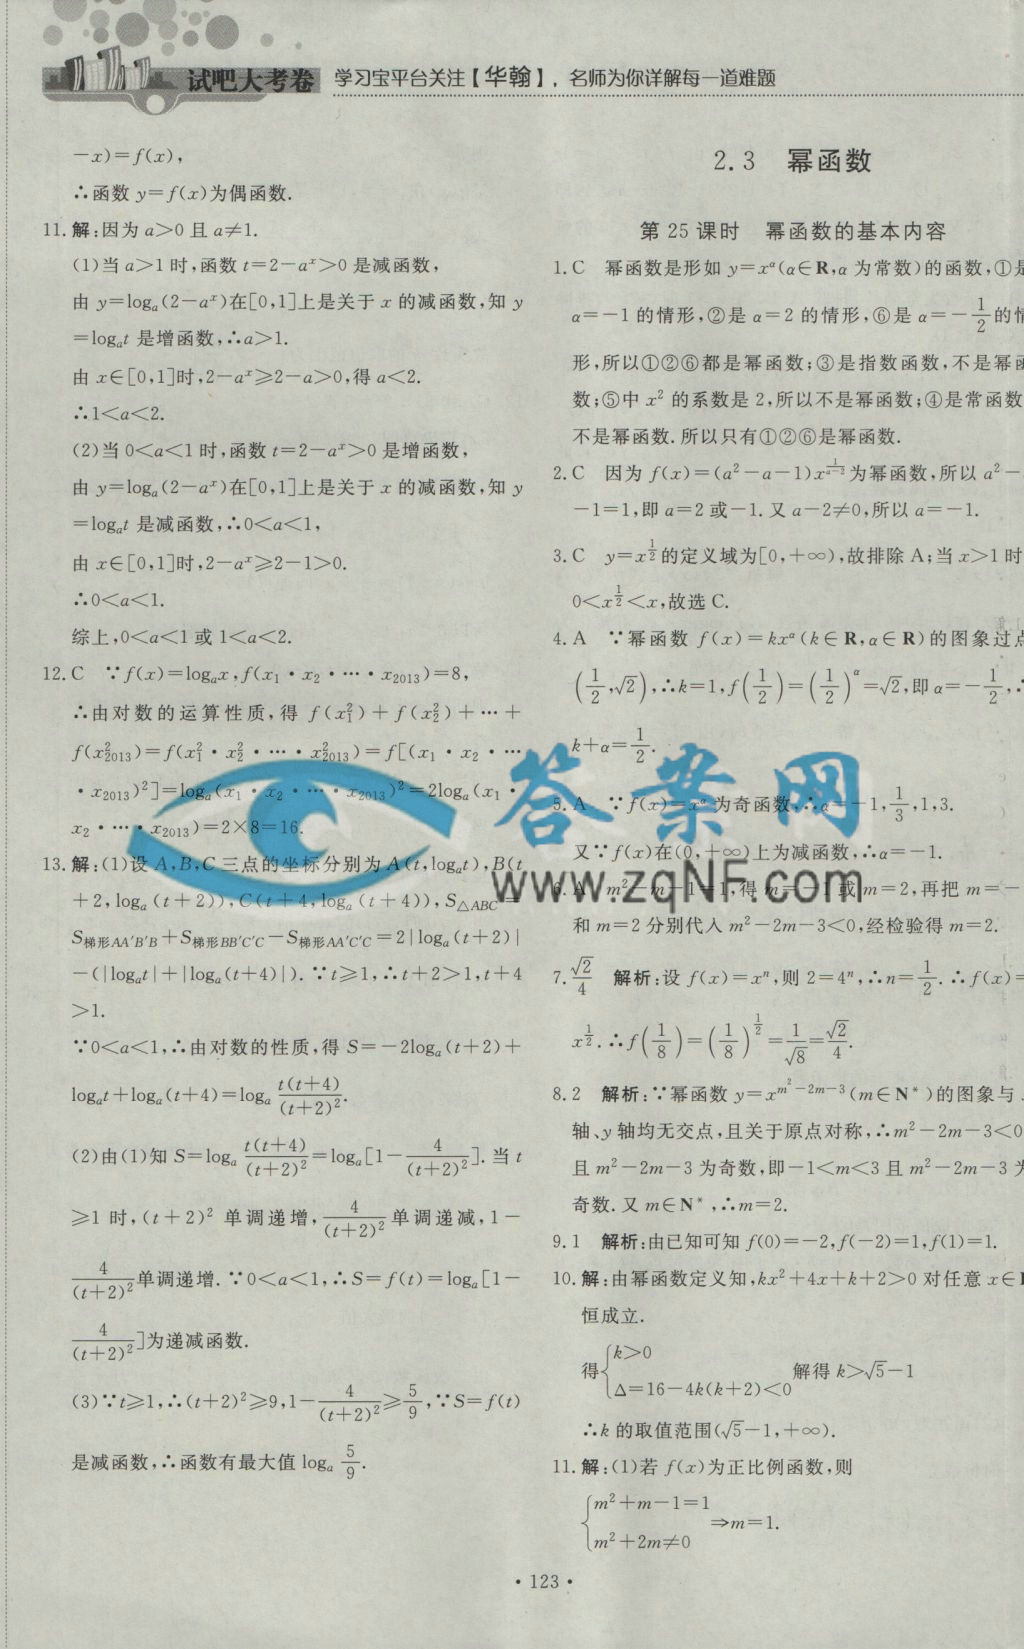 试吧大考卷 学习宝平台关注【华翰】,名师为你详解每一道难题
-x)=f(x),
∴函数 y=f(x)为偶函数.
11.解:因为 a>0 且 a≠1.
(1)当 a>1 时,函数 t=2-aˣ>0 是减函数,
由 y=logₐ(2-aˣ)在[0,1]上是关于 x 的减函数,知 y
=logₐt 是增函数,∴a>1.
由 x∈[0,1]时,2-aˣ≥2-a>0,得 a<2.
∴1<a<2.
(2)当 0<a<1 时,函数 t=2-aˣ>0 是增函数,
由 y=logₐ(2-aˣ)在[0,1]上是关于 x 的减函数,知 y
=logₐt 是减函数,∴0<a<1,
由 x∈[0,1]时,2-aˣ≥2-1>0.
∴0<a<1.
综上,0<a<1 或 1<a<2.
12.C ∵f(x)=logₐx,f(x₁·x₂·…·x₂₀₁₃)=8,
∴由对数的运算性质,得 f(x₁²)+f(x₂²)+…+
f(x₂₀₁₃²)=f(x₁²·x₂²·…·x₂₀₁₃²)=f[(x₁·x₂·…
·x₂₀₁₃)²]=logₐ(x₁·x₂·…·x₂₀₁₃)²=2logₐ(x₁·
x₂·…·x₂₀₁₃)=2×8=16.
13.解:(1)设 A,B,C 三点的坐标分别为 A(t,logₐt),B(t
+2,logₐ(t+2)),C(t+4,logₐ(t+4)),S△ABC=
S梯形AA′B′B+S梯形BB′C′C-S梯形AA′C′C=2|logₐ(t+2)|
-(|logₐt|+|logₐ(t+4)|).∵t≥1,∴t+2>1,t+4
>1.
∵0<a<1,∴由对数的性质,得 S=-2logₐ(t+2)+
logₐt+logₐ(t+4)=logₐ t(t+4)/(t+2)².
(2)由(1)知 S=logₐ t(t+4)/(t+2)²=logₐ[1-4/(t+2)²].当 t
≥1 时,(t+2)² 单调递增,4/(t+2)² 单调递减,1-
4/(t+2)²单调递增.∵0<a<1,∴S=f(t)=logₐ[1-
4/(t+2)²]为递减函数.
(3)∵t≥1,∴(t+2)²≥9,1-4/(t+2)²≥5/9,∵S=f(t)
是减函数,∴函数有最大值 logₐ 5/9.
2.3 幂函数
第 25 课时 幂函数的基本内容
1.C 幂函数是形如 y=x^α(α∈R,α 为常数)的函数,①是
α=-1 的情形,②是 α=2 的情形,⑥是 α=-1/2的情
形,所以①②⑥都是幂函数;③是指数函数,不是幂函
数;⑤中 x² 的系数是 2,所以不是幂函数;④是常函数
不是幂函数.所以只有①②⑥是幂函数.
2.C 因为 f(x)=(a²-a-1)x^(1/(a-2))为幂函数,所以 a²-
-1=1,即 a=2 或-1.又 a-2≠0,所以 a=-1.
3.C y=x^(1/2)的定义域为[0,+∞),故排除 A;当 x>1 时
0<x^(1/2)<x,故选 C.
4.A ∵幂函数 f(x)=kx^α(k∈R,α∈R)的图象过点
(1/2,√2),∴k=1,f(1/2)=(1/2)^α=√2,即 α=-1/2,∴
k+α=1/2.
5.A ∵f(x)=x^α 为奇函数,∴α=-1,1/3,1,3.
又∵f(x)在(0,+∞)上为减函数,∴α=-1.
6.A m²-m-1=1,得 m=-1 或 m=2,再把 m=-
和 m=2 分别代入 m²-2m-3<0,经检验得 m=2.
7.√2/4 解析:设 f(x)=xⁿ,则 2=4ⁿ,∴n=1/2.∴f(x)=
x^(1/2).∴f(1/8)=(1/8)^(1/2)=1/√8=√2/4.
8.2 解析:∵幂函数 y=x^(m²-2m-3)(m∈N*)的图象与
轴、y 轴均无交点,且关于原点对称,∴m²-2m-3<0
且 m²-2m-3 为奇数,即-1<m<3 且 m²-2m-3 为
奇数.又 m∈N*,∴m=2.
9.1 解析:由已知可知 f(0)=-2,f(-2)=1,f(1)=1.
10.解:由幂函数定义知,kx²+4x+k+2>0 对任意 x∈R
恒成立.
得{k>0
Δ=16-4k(k+2)<0 解得 k>√5-1
∴k 的取值范围(√5-1,+∞).
11.解:(1)若 f(x)为正比例函数,则
{m²+m-1=1
m²+2m≠0 ⇒m=1.
答案网
www.zqNF.com
·123·